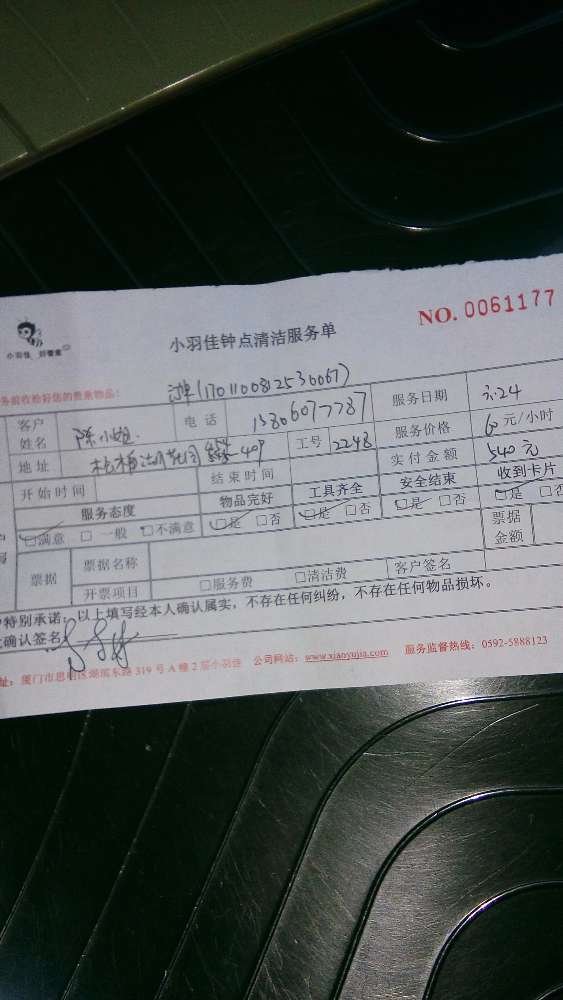 小羽佳 好管家
小羽佳钟点清洁服务单
NO. 0061177
务前收检好您的贵重物品!
(1701100812530067)
客户姓名 陈小姐 电话 13806077787 服务日期 6.24
地址 工号 2248 服务价格 60元/小时
开始时间 结束时间 实付金额 540元
服务态度 物品完好 工具齐全 安全结束 收到卡片
□满意 □一般 □不满意 □是 □否 □是 □否 □是 □否 □是 □否
票据 票据名称 票据金额
开票项目 □服务费 □清洁费 客户签名
特别承诺:以上填写经本人确认属实,不存在任何纠纷,不存在任何物品损坏。
确认签名:
址:厦门市思明区湖滨东路319号A幢2层小羽佳 公司网站:www.xiaoyujia.com 服务监督热线:0592-5888123